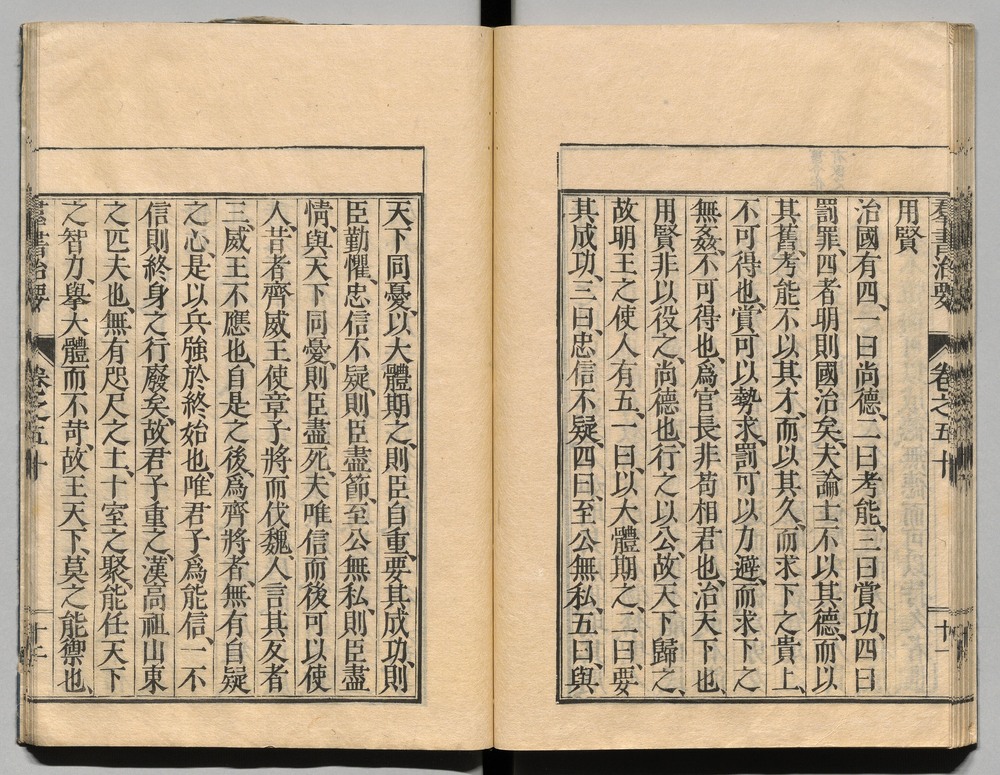 羣書治要 卷之五十 十一
用賢
治國有四、一曰尚德、二曰考能、三曰賞功、四曰
罰罪、四者明則國治矣、夫論士不以其德、而以
其舊、考能不以其才、而以其久、而求下之貴上、
不可得也、賞可以勢求、罰可以力避、而求下之
無姦、不可得也、爲官長非苟相君也、治天下也、
用賢非以役之、尚德也、行之以公、故天下歸之、
故明王之使人有五、一曰、以大體期之、二曰、要
其成功、三曰、忠信不疑、四曰、至公無私、五曰、與
天下同憂、以大體期之、則臣自重、要其成功、則
臣勤懼、忠信不疑、則臣盡節、至公無私、則臣盡
情、與天下同憂、則臣盡死、夫唯信而後可以使
人、昔者齊威王使章子將而伐魏、人言其反者
三、威王不應也、自是之後、爲齊將者、無有自疑
之心、是以兵強於終始也、唯君子爲能信、一不
信則終身之行廢矣、故君子重之、漢高祖山東
之匹夫也、無有咫尺之土、十室之聚、能任天下
之智力、擧大體而不苛、故王天下、莫之能禦也、
羣書治要 卷之五十 十二